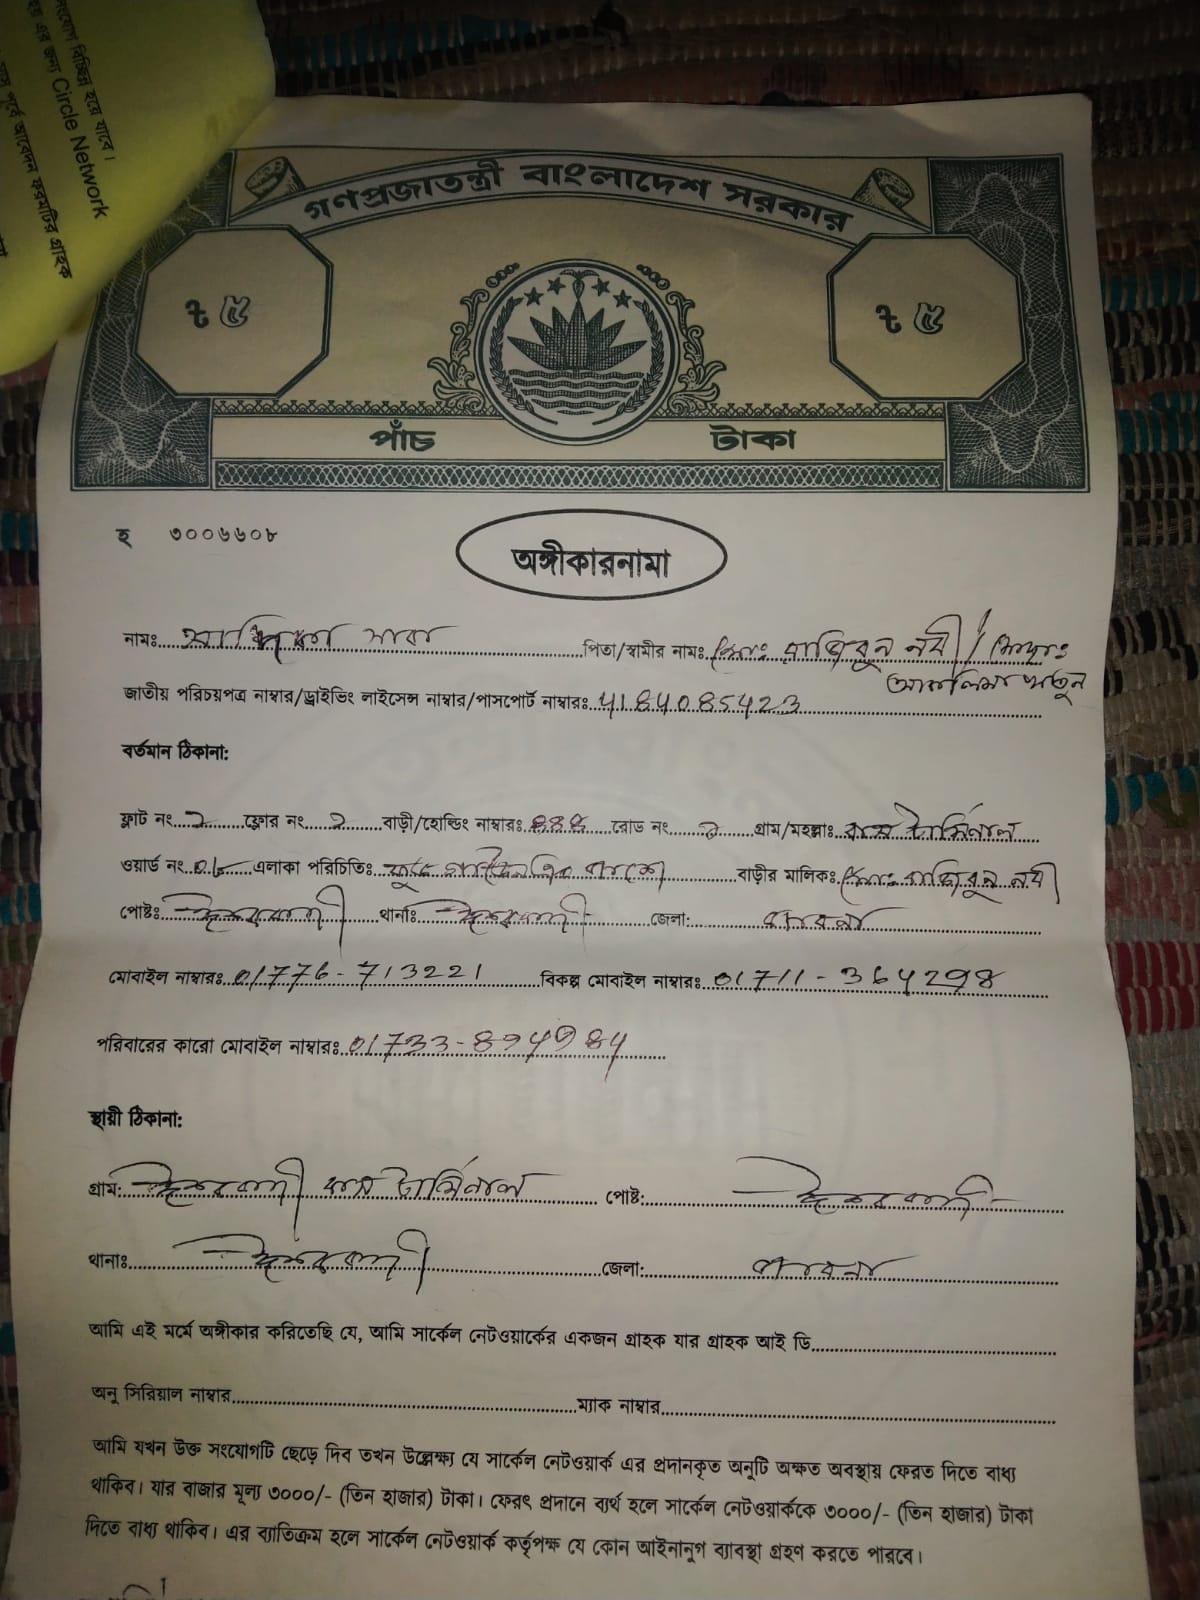 সংযোগ বিচ্ছিন্ন হয়ে যাবে।
এর জন্য Circle Network
পূর্বে আবেদন ফরমটির গ্রাহক
গণপ্রজাতন্ত্রী বাংলাদেশ সরকার
৳ ৫ ৳ ৫
পাঁচ টাকা
হ ৩০০৬৬০৮
অঙ্গীকারনামা
নামঃ সারা পিতা/স্বামীর নামঃ মোঃ রাজিবুন নবী / মোছাঃ
খাতুন
জাতীয় পরিচয়পত্র নাম্বার/ড্রাইভিং লাইসেন্স নাম্বার/পাসপোর্ট নাম্বারঃ 4184085423
বর্তমান ঠিকানা:
ফ্লাট নং ২ ফ্লোর নং ২ বাড়ী/হোল্ডিং নাম্বারঃ রোড নং ২ গ্রাম/মহল্লাঃ বাস টার্মিনাল
ওয়ার্ড নং এলাকা পরিচিতিঃ পাশে বাড়ীর মালিকঃ মোঃ রাজিবুন নবী
পোষ্টঃ ঈশ্বরদী থানাঃ ঈশ্বরদী জেলা: পাবনা
মোবাইল নাম্বারঃ 01776-713221 বিকল্প মোবাইল নাম্বারঃ 01711-364298
পরিবারের কারো মোবাইল নাম্বারঃ
স্থায়ী ঠিকানা:
গ্রাম: ঈশ্বরদী বাস টার্মিনাল পোষ্ট: ঈশ্বরদী
থানাঃ ঈশ্বরদী জেলা: পাবনা
আমি এই মর্মে অঙ্গীকার করিতেছি যে, আমি সার্কেল নেটওয়ার্কের একজন গ্রাহক যার গ্রাহক আই ডি
অনু সিরিয়াল নাম্বার ম্যাক নাম্বার
আমি যখন উক্ত সংযোগটি ছেড়ে দিব তখন উল্লেক্ষ্য যে সার্কেল নেটওয়ার্ক এর প্রদানকৃত অনুটি অক্ষত অবস্থায় ফেরত দিতে বাধ্য
থাকিব। যার বাজার মূল্য ৩০০০/- (তিন হাজার) টাকা। ফেরৎ প্রদানে ব্যর্থ হলে সার্কেল নেটওয়ার্ককে ৩০০০/- (তিন হাজার) টাকা
দিতে বাধ্য থাকিব। এর ব্যাতিক্রম হলে সার্কেল নেটওয়ার্ক কর্তৃপক্ষ যে কোন আইনানুগ ব্যাবস্থা গ্রহণ করতে পারবে।